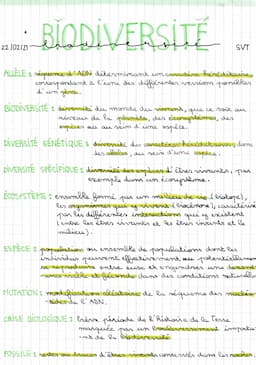 BIODIVERSITÉ
biodiversité
22/02/21 SVT
ALLÈLE : séquence d'ADN déterminant un caractère héréditaire
correspondant à l'une des différentes versions possibles
d'un gène.
BIODIVERSITÉ : diversité du monde du vivant, que ce soit au
niveau de la planète, des écosystèmes, des
espèces ou au sein d'une espèce.
DIVERSITÉ GÉNÉTIQUE : diversité des caractères héréditaires, dans
les allèles, au sein d'une espèce.
DIVERSITÉ SPÉCIFIQUE : diversité des espèces d'êtres vivants, par
exemple dans un écosystème.
ÉCOSYSTÈME : ensemble formé par un milieu de vie (biotope),
les organismes qui y vivent (biocénose), caractérisé
par les différentes interactions qui y existent
(entre les êtres vivants et les êtres vivants et le
milieu).
ESPÈCE : population ou ensemble de populations dont les
individus peuvent effectivement ou potentiellement
se reproduire entre eux et engendrer une descen-
viable et féconde dans des conditions naturelles
MUTATION : modification aléatoire de la séquence des nucléo-
-tides de l'ADN.
CRISE BIOLOGIQUE : brève période de l'Histoire de la Terre
marquée par un bouleversement importa-
-nt de la biodiversité
FOSSILE : restes ou traces d'êtres vivants conservés dans les roches.